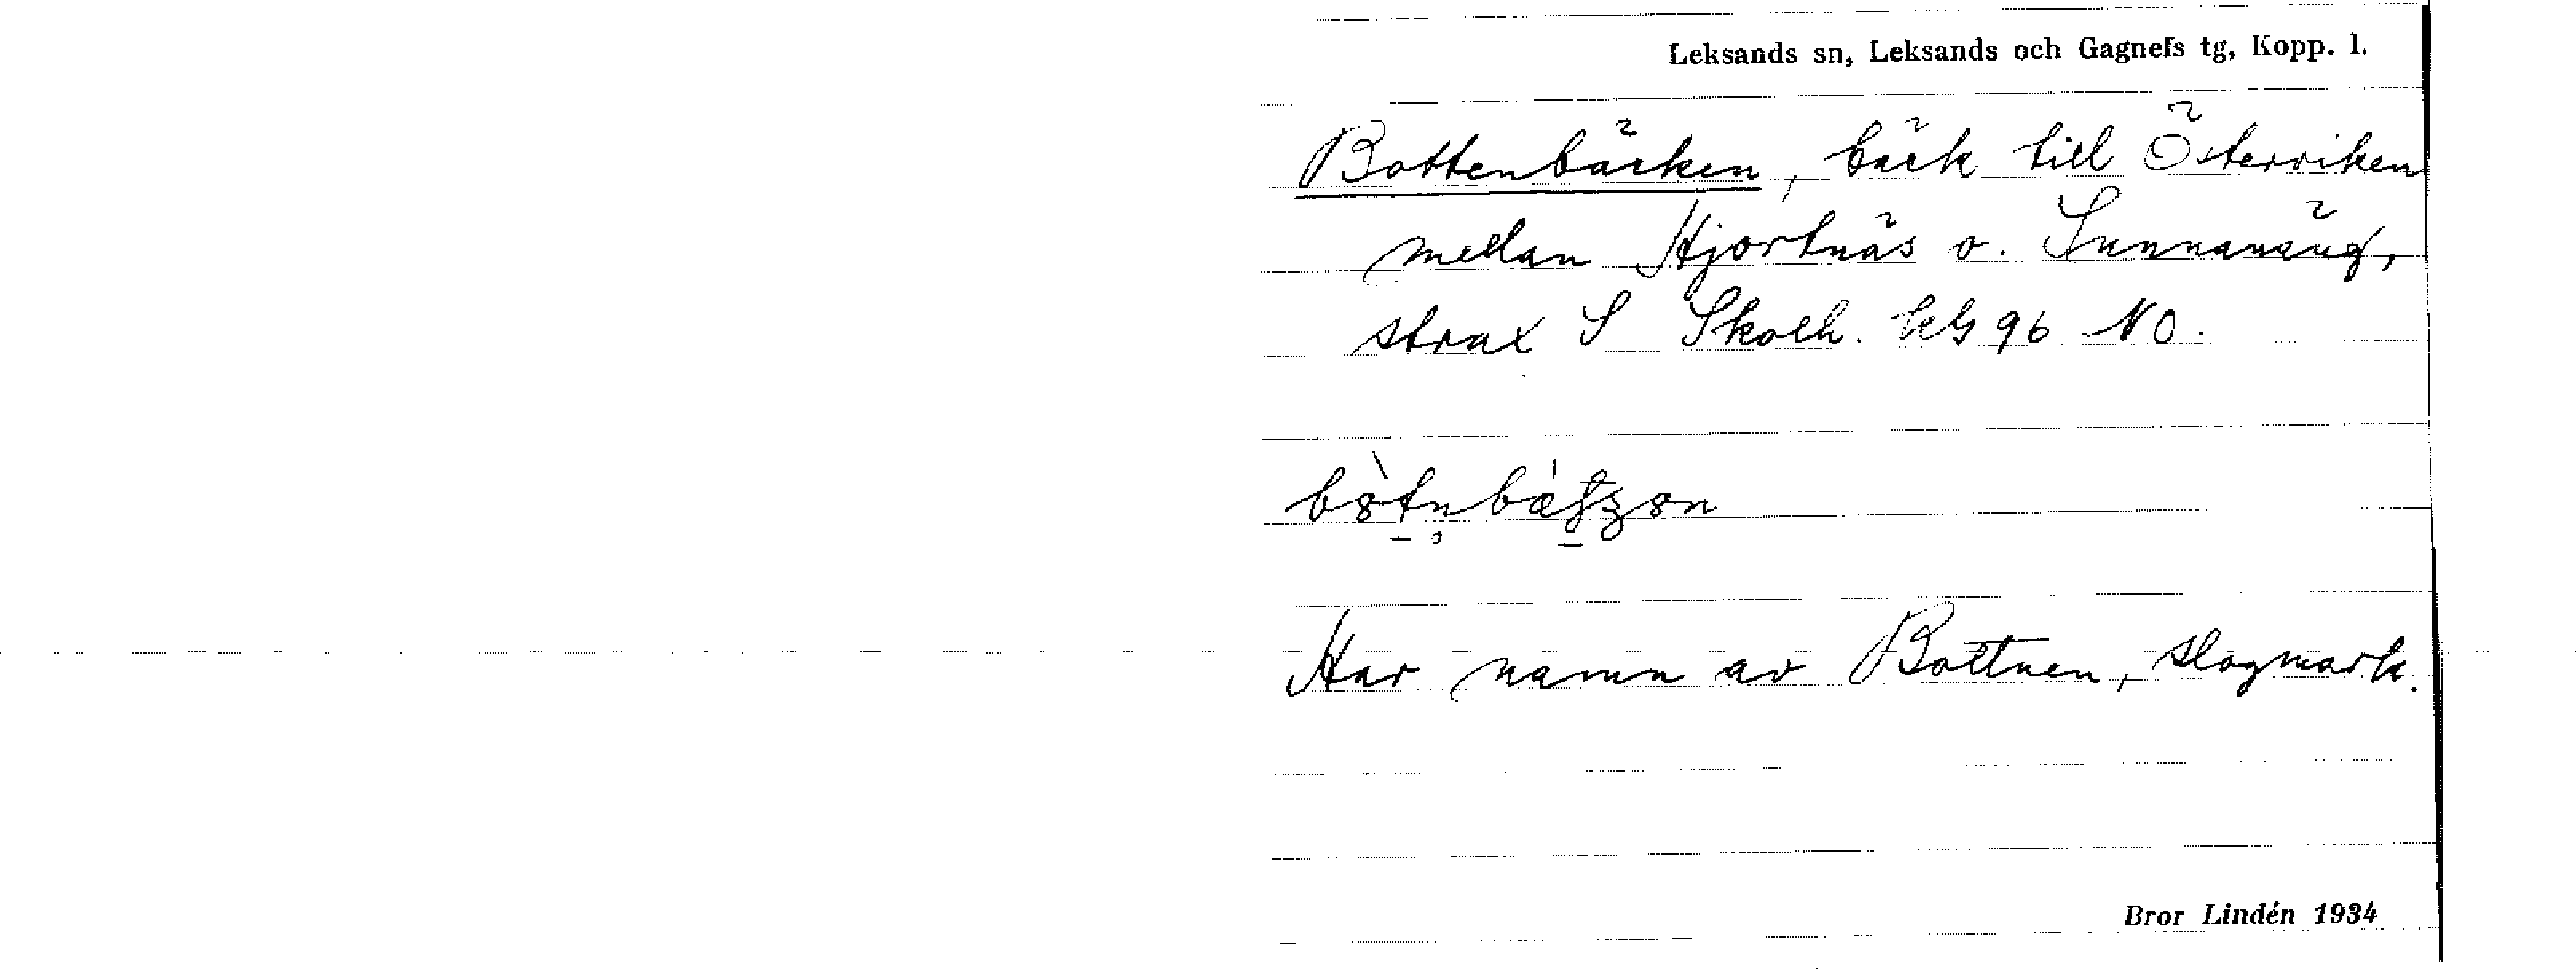 Leksands sn, Leksands och Gagnefs tg, Kopp. l.
Bottenbäcken, bäck till Österviken
mellan Hjortnäs o. Sunnanäng,
strax S Skolh. kbl 96 NO.
Har namn av Bottnen, slogmark.
Bror Lindén 1934